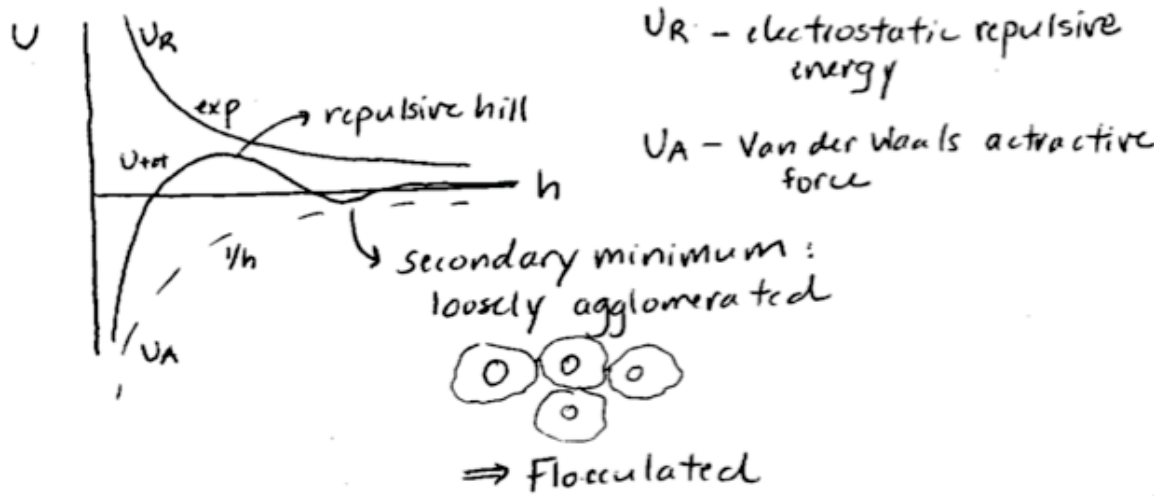 U
U_R
exp
repulsive hill
U_tot
h
1/h
U_A
secondary minimum :
loosely agglomerated
⇒ Flocculated
U_R - electrostatic repulsive
energy
U_A - Van der Waals actractive
force